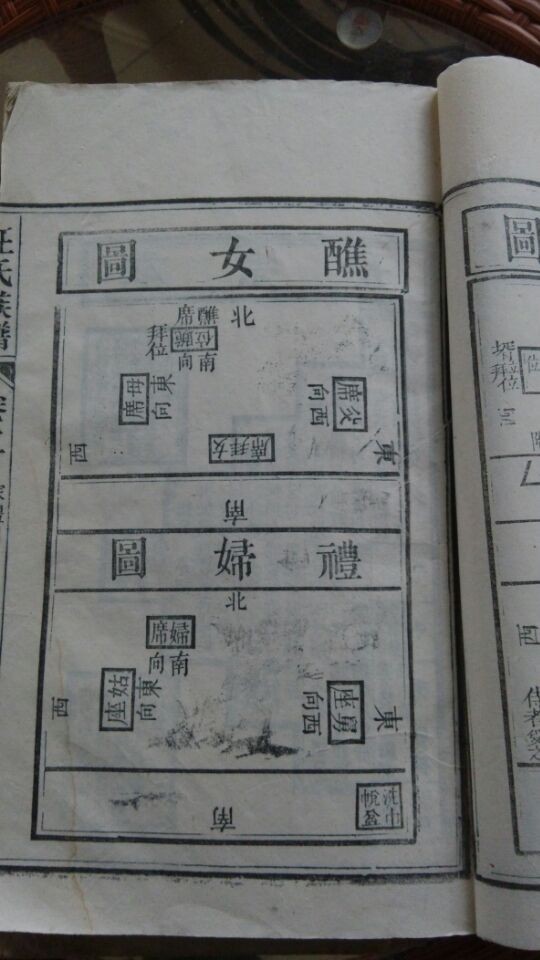 醮女圖
北
醮位
席
南向
拜位
母席
東向
父席
西向
女拜席
西
東
南
禮婦圖
北
婦席
南向
姑座
東向
舅座
西向
西
東
南
洗巾
帨盆
汪氏族譜
圖
壻拜位
西